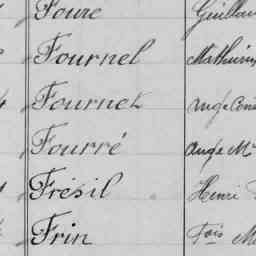 Foure Guillau
Fournel Mathurin
Fournet Ange
Fourré Ange M
Frésil Henri
Frin Fois M